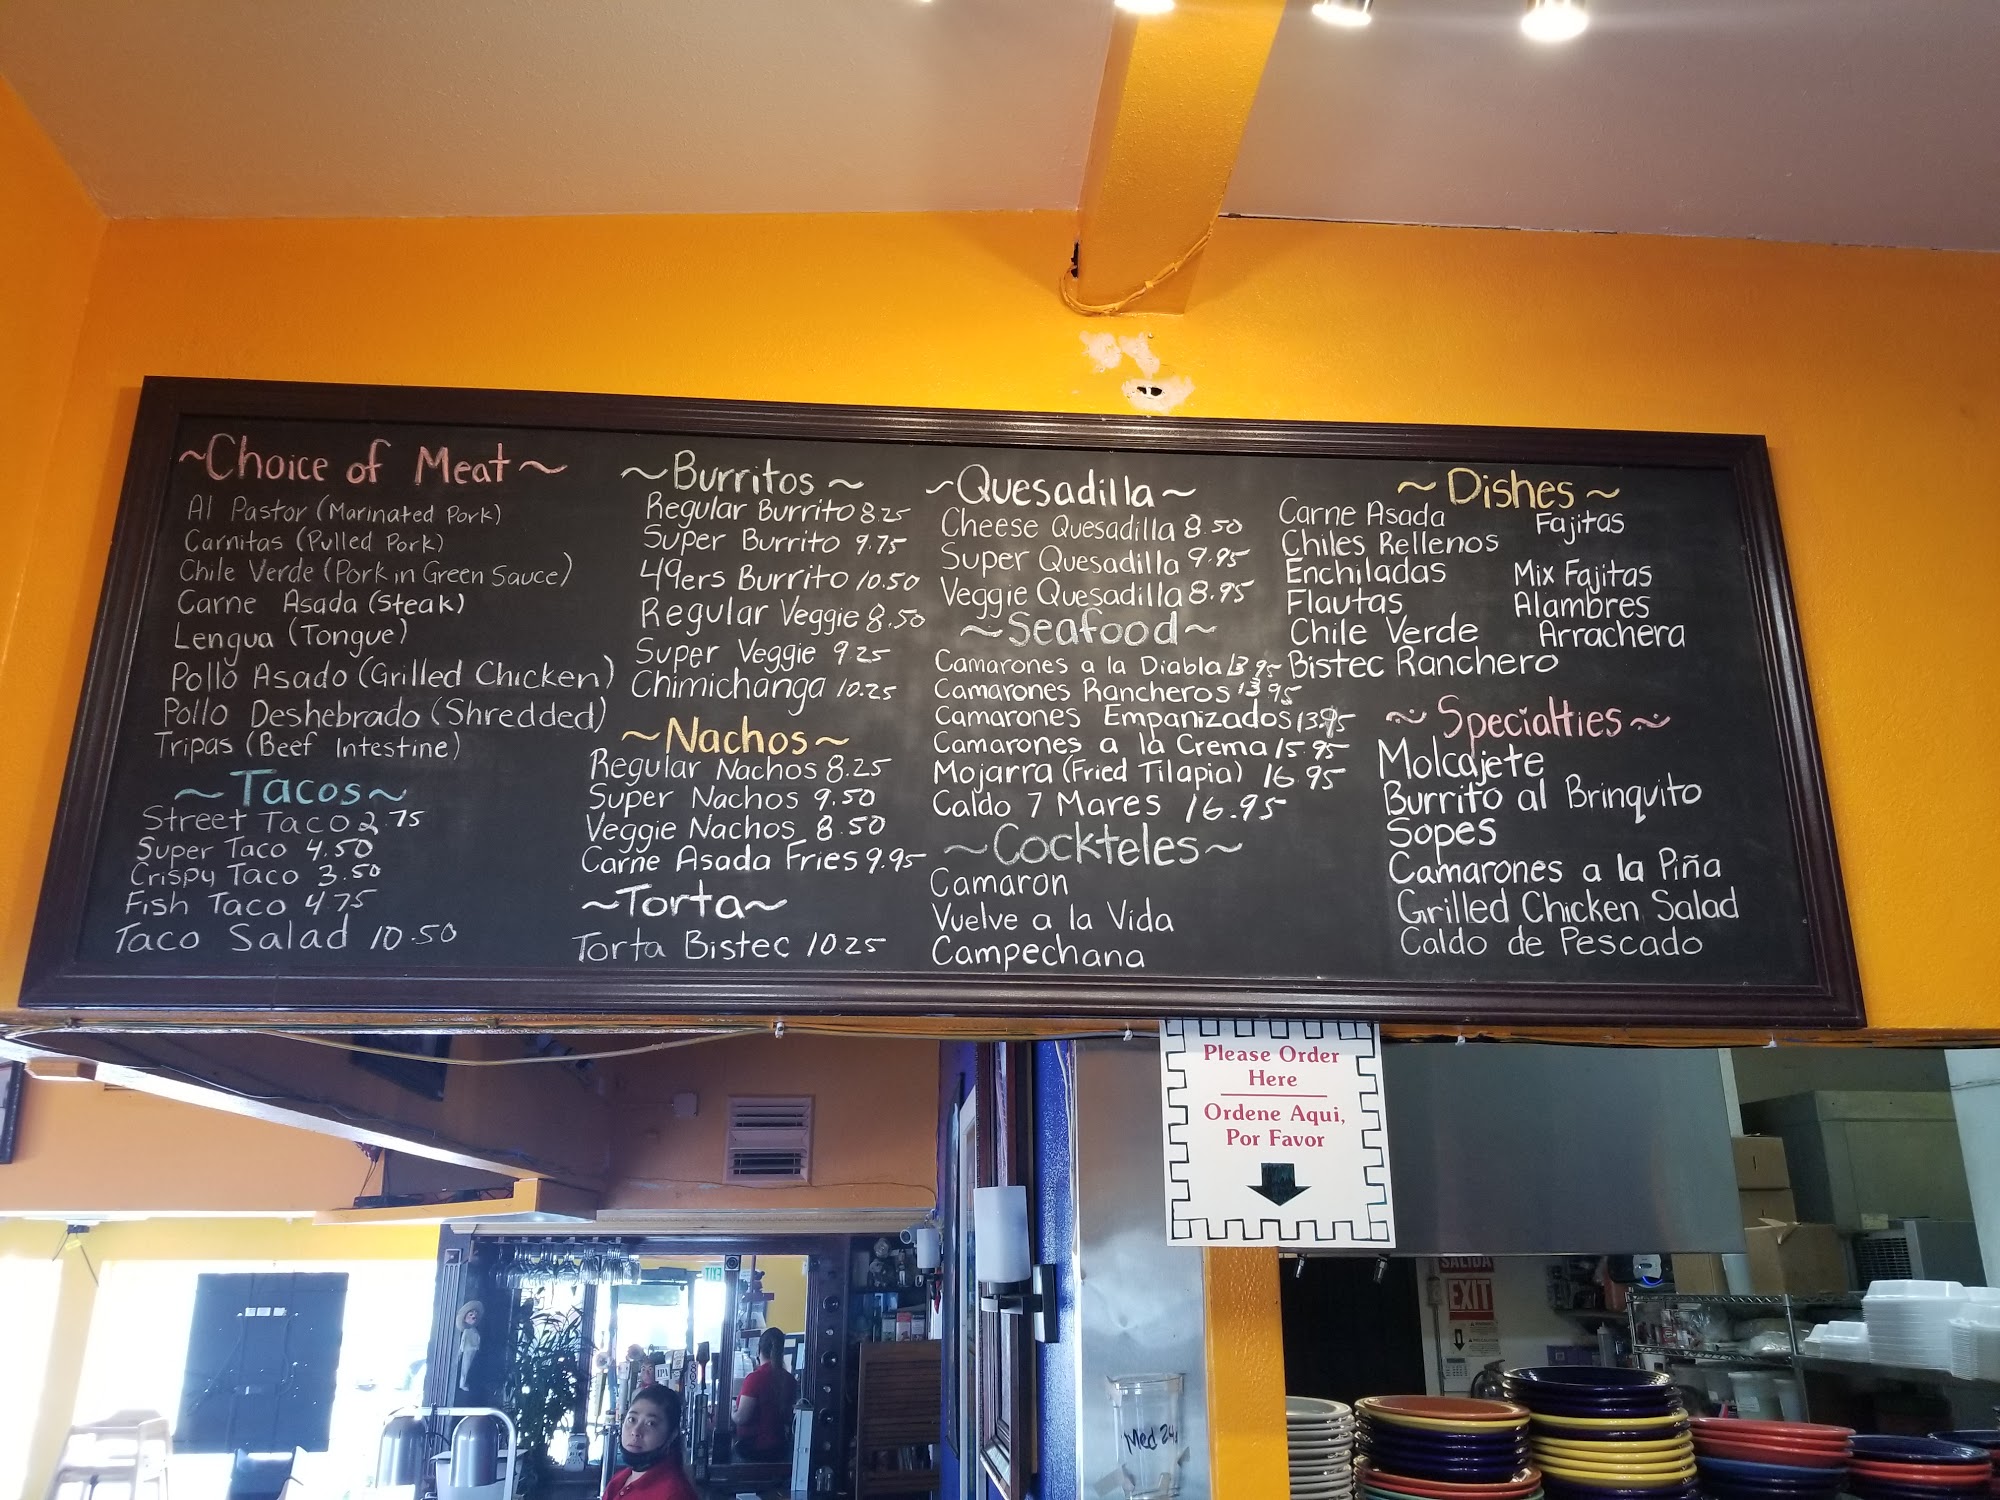 ~Choice of Meat~
Al Pastor (Marinated Pork)
Carnitas (Pulled Pork)
Chile Verde (Pork in Green Sauce)
Carne Asada (Steak)
Lengua (Tongue)
Pollo Asado (Grilled Chicken)
Pollo Deshebrado (Shredded)
Tripas (Beef Intestine)
~Tacos~
Street Taco 2.75
Super Taco 4.50
Crispy Taco 3.50
Fish Taco 4.75
Taco Salad 10.50
~Burritos~
Regular Burrito 8.25
Super Burrito 9.75
49ers Burrito 10.50
Regular Veggie 8.50
Super Veggie 9.25
Chimichanga 10.25
~Nachos~
Regular Nachos 8.25
Super Nachos 9.50
Veggie Nachos 8.50
Carne Asada Fries 9.95
~Torta~
Torta Bistec 10.25
~Quesadilla~
Cheese Quesadilla 8.50
Super Quesadilla 9.95
Veggie Quesadilla 8.95
~Seafood~
Camarones a la Diabla 13.95
Camarones Rancheros 13.95
Camarones Empanizados 13.95
Camarones a la Crema 15.95
Mojarra (Fried Tilapia) 16.95
Caldo 7 Mares 16.95
~Cockteles~
Camaron
Vuelve a la Vida
Campechana
~Dishes~
Carne Asada
Chiles Rellenos
Enchiladas
Flautas
Chile Verde
Bistec Ranchero
Fajitas
Mix Fajitas
Alambres
Arrachera
~Specialties~
Molcajete
Burrito al Brinquito
Sopes
Camarones a la Piña
Grilled Chicken Salad
Caldo de Pescado
Please Order
Here
Ordene Aqui,
Por Favor
SALIDA
EXIT
EXIT
IPA